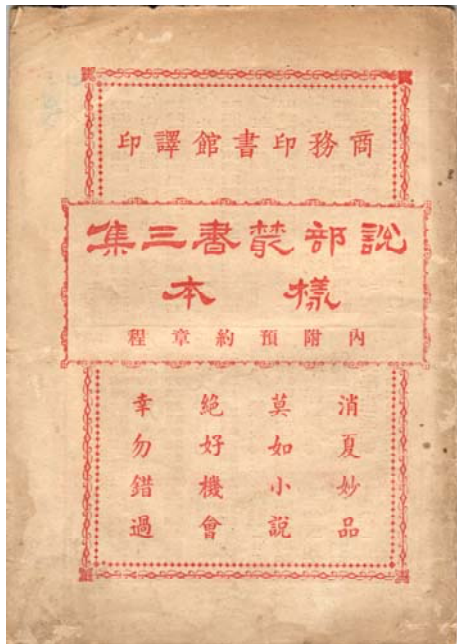 商務印書館譯印
說部叢書三集
樣本
內附預約章程
消夏妙品
莫如小說
絕好機會
幸勿錯過